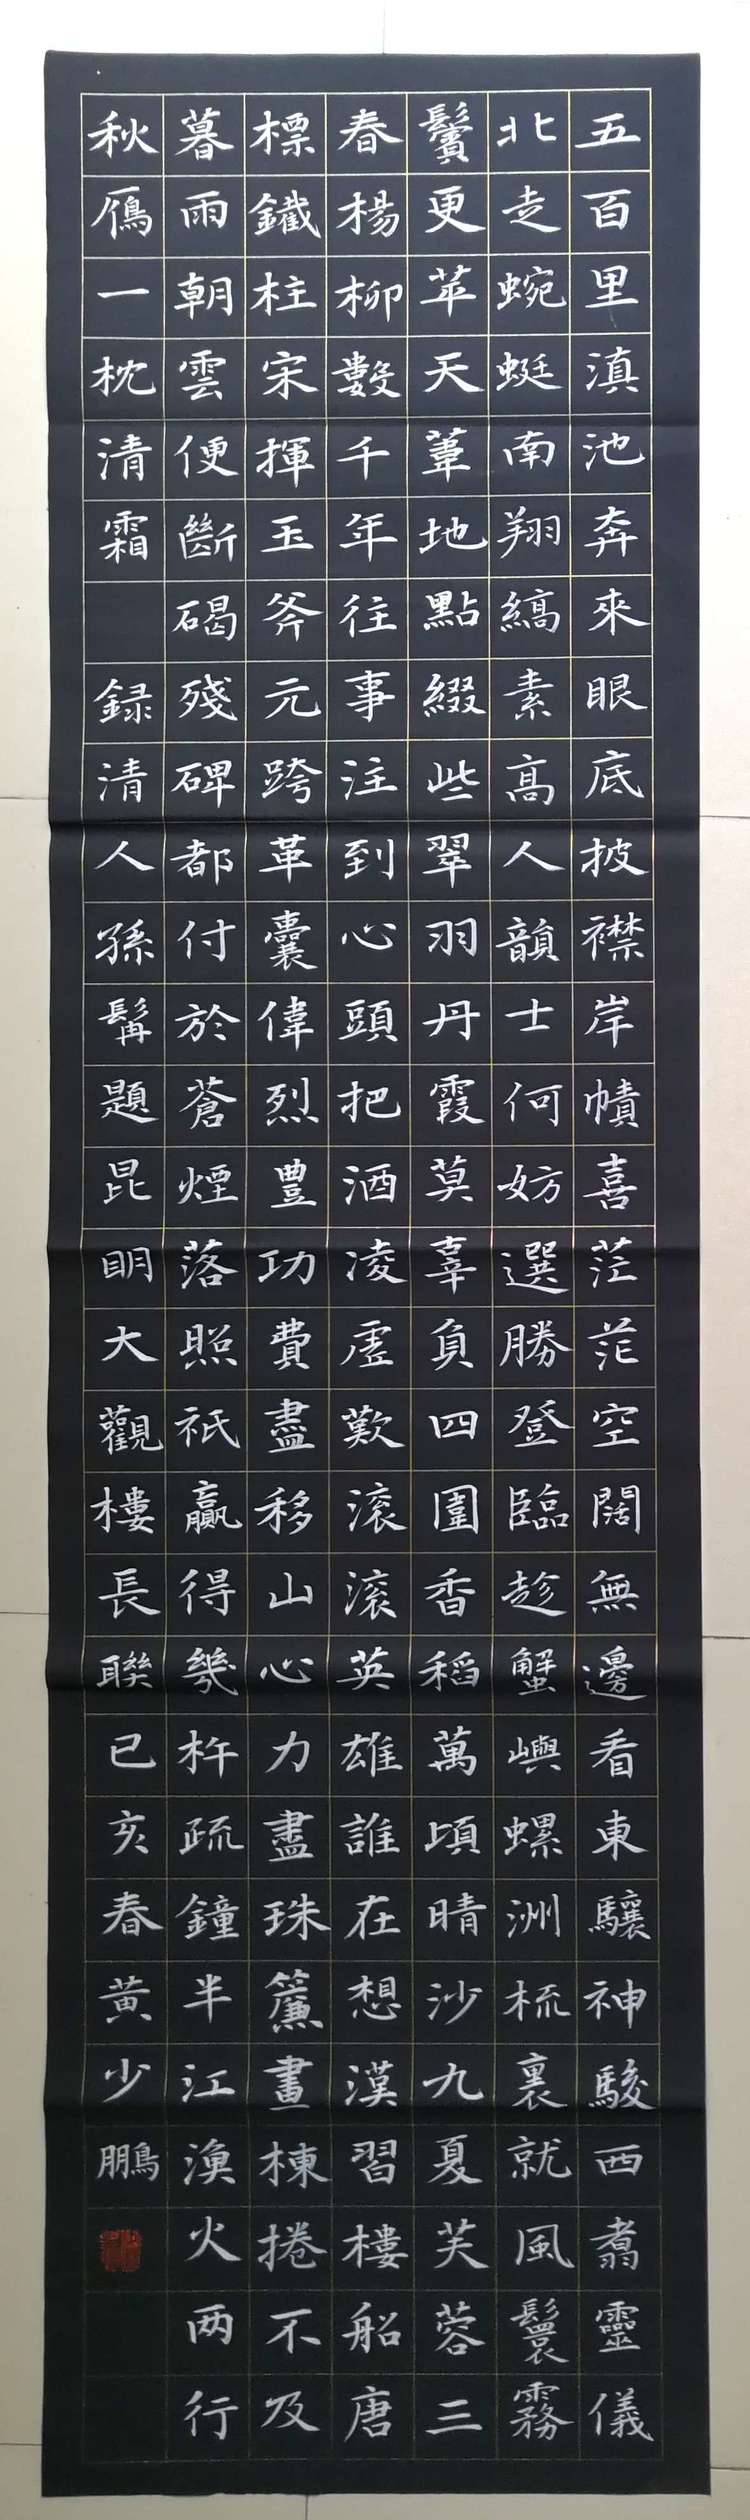 五百里滇池奔來眼底披襟岸幘喜茫茫空闊無邊看東驤神駿西翥靈儀
北走蜿蜓南翔縞素高人韻士何妨選勝登臨趁蟹嶼螺洲梳裹就風鬟霧
鬢更苹天葦地點綴些翠羽丹霞莫辜負四圍香稻萬頃晴沙九夏芙蓉三
春楊柳數千年往事注到心頭把酒凌虛歎滚滚英雄誰在想漢習樓船唐
標鐵柱宋揮玉斧元跨革囊偉烈豐功費盡移山心力盡珠簾畫棟捲不及
暮雨朝雲便斷碣殘碑都付於蒼煙落照祇贏得幾杵疏鐘半江漁火两行
秋鴈一枕清霜 録清人孫髯題昆明大觀樓長聯己亥春黃少鵬